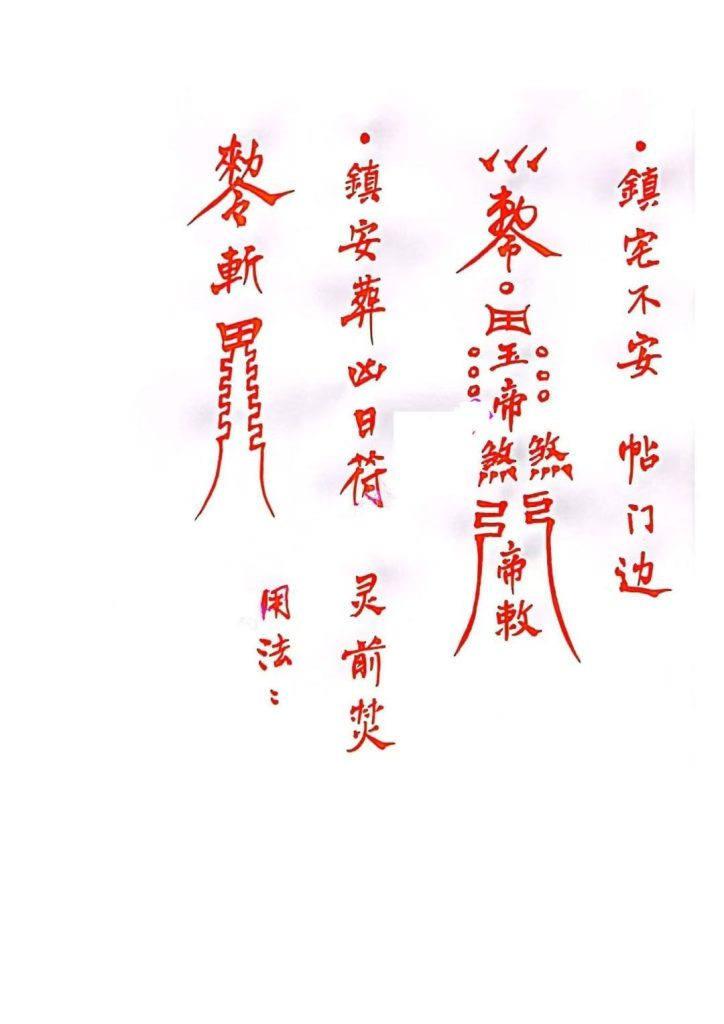 鎮宅不安 帖门边
勅令
田
玉帝
煞煞
帝敕
鎮安葬凶日符 灵前焚
勅令
斬
用法：